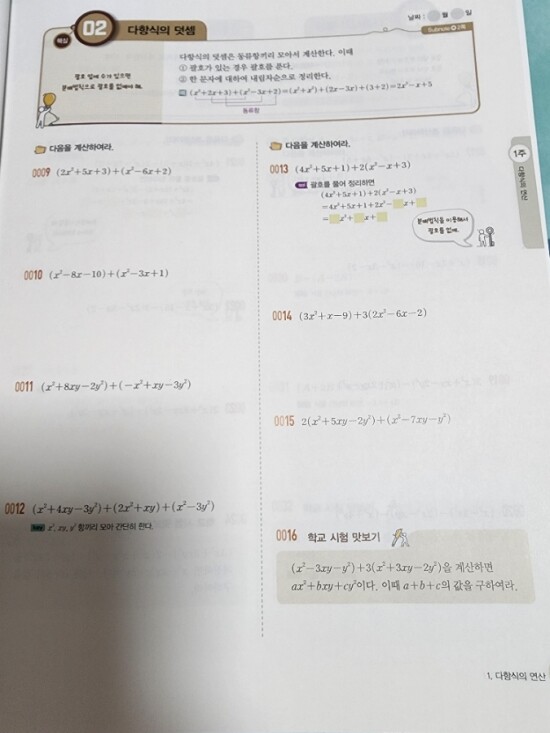 날짜: 월 일
핵심 02 다항식의 덧셈
Subnote 2쪽
괄호 앞에 수가 있으면
분배법칙으로 괄호를 없애야 해.
다항식의 덧셈은 동류항끼리 모아서 계산한다. 이때
① 괄호가 있는 경우 괄호를 푼다.
② 한 문자에 대하여 내림차순으로 정리한다.
예 (x²+2x+3)+(x²-3x+2)=(x²+x²)+(2x-3x)+(3+2)=2x²-x+5
동류항
다음을 계산하여라.
0009 (2x²+5x+3)+(x²-6x+2)
0010 (x²-8x-10)+(x²-3x+1)
0011 (x²+8xy-2y²)+(-x²+xy-3y²)
0012 (x²+4xy-3y²)+(2x²+xy)+(x²-3y²)
x², xy, y² 항끼리 모아 간단히 한다.
다음을 계산하여라.
0013 (4x²+5x+1)+2(x²-x+3)
괄호를 풀어 정리하면
(4x²+5x+1)+2(x²-x+3)
=4x²+5x+1+2x²-□x+□
=□x²+□x+□
분배법칙을 이용해서
괄호를 없애.
0014 (3x²+x-9)+3(2x²-6x-2)
0015 2(x²+5xy-2y²)+(x²-7xy-y²)
0016 학교 시험 맛보기
(x²-3xy-y²)+3(x²+3xy-2y²)을 계산하면
ax²+bxy+cy²이다. 이때 a+b+c의 값을 구하여라.
1주
다항식의 연산
1. 다항식의 연산